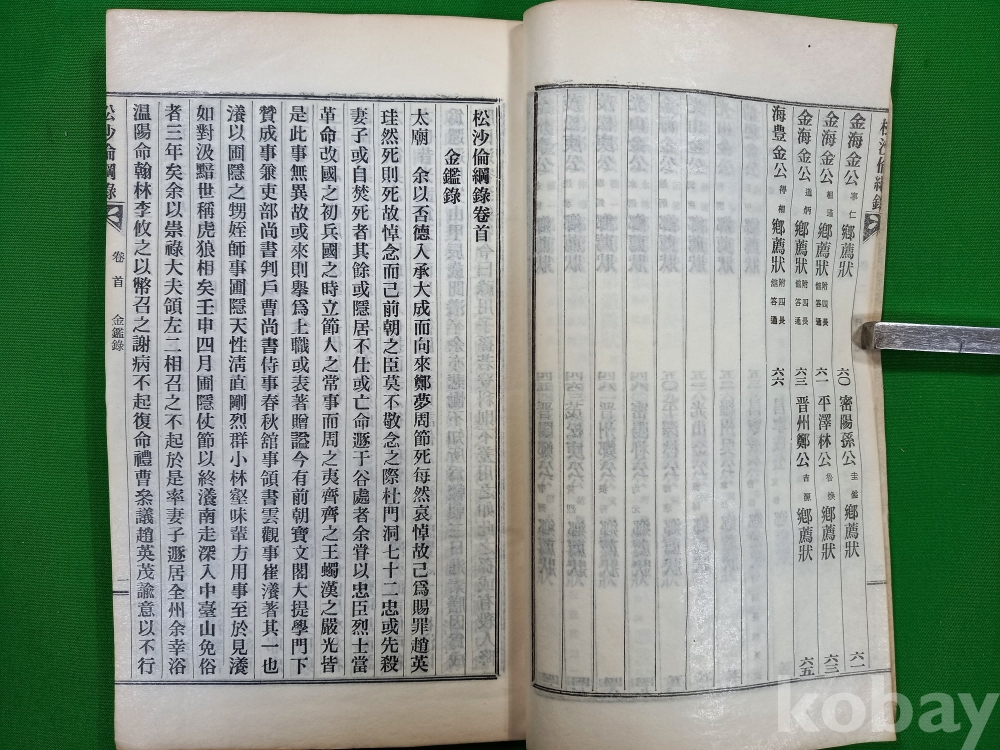 松沙倫綱錄
金海金公 鄉薦狀 附四長館答通 六〇
金海金公 鄉薦狀 附四長館答通 六一
金海金公 鄉薦狀 附四長館答通 六三
海豊金公 得相 鄉薦狀 附四長館答通 六六
密陽孫公 鄉薦狀 六一
平澤林公 魯煥 鄉薦狀 六三
晋州鄭公 鄉薦狀 六五
松沙倫綱錄卷首
金鑑錄
太廟 余以否德入承大成而向來鄭夢周節死每然哀悼故己爲賜罪趙英
珪然死則死故悼念而己前朝之臣莫不敬念之際杜門洞七十二忠或先殺
妻子或自焚死者其餘或隱居不仕或亡命遯于谷處者余眷以忠臣烈士當
革命改國之初兵國之時立節人之常事而周之夷齊齊之王蠋漢之嚴光皆
是此事無異故或來則擧爲上職或表著贈諡今有前朝寶文閣大提學門下
贊成事兼吏部尚書判戶曹尚書侍事春秋舘事領書雲觀事崔瀁著其一也
瀁以圃隱之甥姪師事圃隱天性淸直剛烈群小林壑味輩方用事至於見瀁
如對汲黯世稱虎狼相矣壬申四月圃隱伏節以終瀁南走深入中臺山免俗
者三年矣余以崇祿大夫領左二相召之不起於是率妻子遯居全州余幸浴
温陽命翰林李攸之以幣召之謝病不起復命禮曹叅議趙英茂諭意以不行
松沙倫綱錄
卷首 金鑑錄
一
kobay